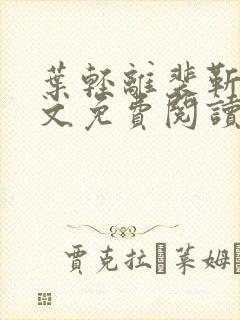 葉輕離裴靳
文免費閱讀
賈克拉 萊姆